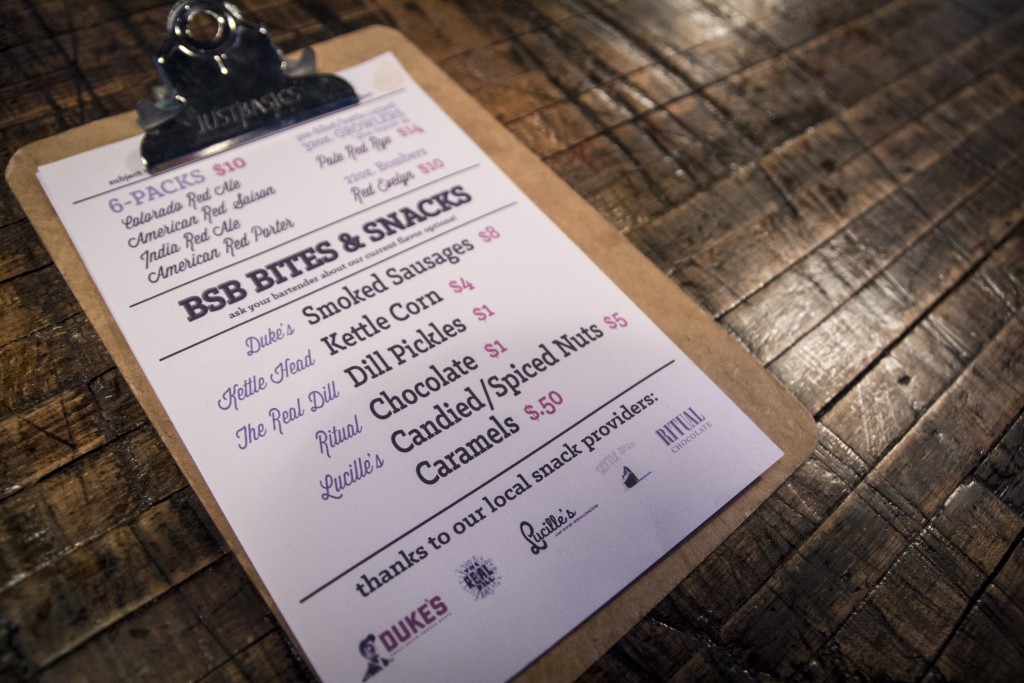 JUST BASICS
subject
6-PACKS $10
Colorado Red Ale
American Red Saison
India Red Ale
American Red Porter
32oz. GROWLERS
Pale Red Rye $14
22oz. Bombers
Red Evelyn $10
BSB BITES & SNACKS
ask your bartender about our current flavor options!
Duke's Smoked Sausages $8
Kettle Head Kettle Corn $4
The Real Dill Dill Pickles $1
Ritual Chocolate $1
Lucille's Candied/Spiced Nuts $5
Caramels $.50
thanks to our local snack providers:
DUKE'S
THE REAL DILL
Lucille's
RITUAL
CHOCOLATE